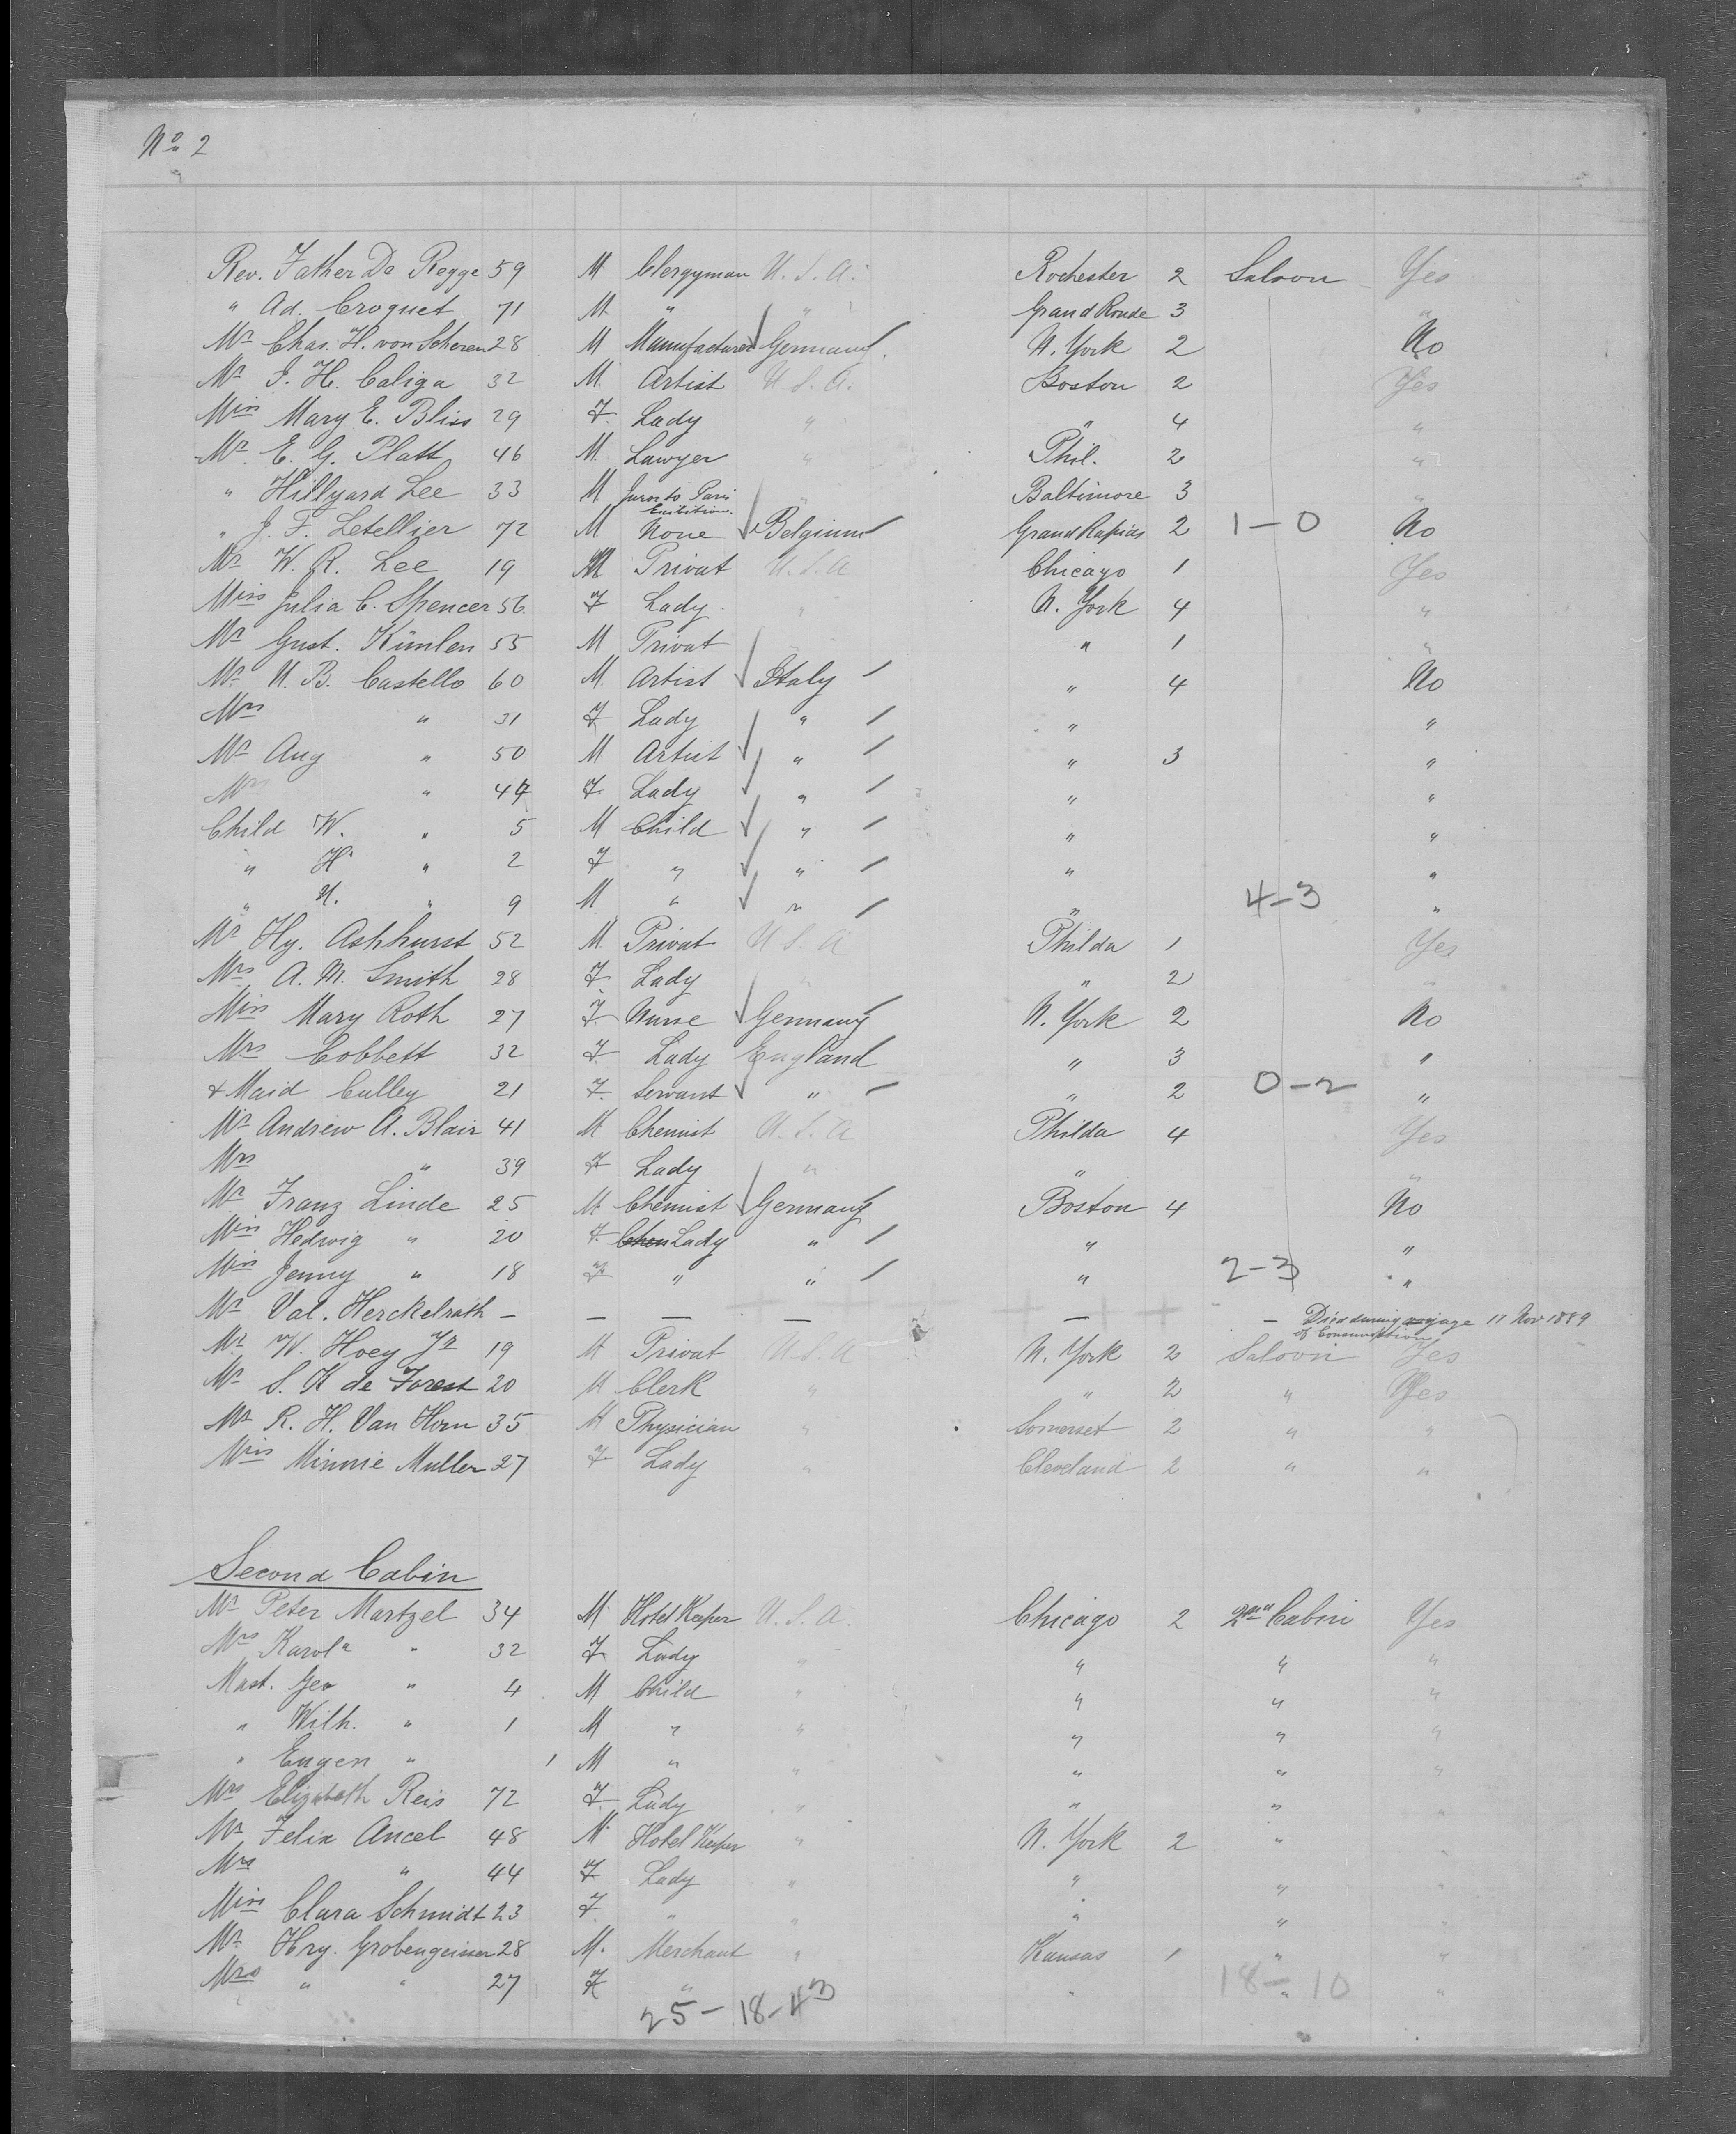 No 2
Rev. Father De Regge 59 M Clergyman U. S. A. Rochester 2 Saloon Yes
" Ad. Croquet 71 M " " Grand Ronde 3 "
Mr Chas. H. von Scheren 28 M Manufacturer Germany N. York 2 No
Mr I. H. Caliga 32 M Artist U. S. A. Boston 2 Yes
Miss Mary E. Bliss 29 F Lady " " 4 "
Mr E. G. Platt 46 M Lawyer " Phil. 2 "
" Hillyard Lee 33 M Juror to Paris Exibition " Baltimore 3 "
" J. F. Letellier 72 M None Belgium Grand Rapids 2 1-0 No
Mr W. R. Lee 19 M Privat U. S. A Chicago 1 Yes
Miss Julia C. Spencer 56 F Lady " N. York 4 "
Mr Gust. Kümlen 55 M Privat " " 1 "
Mr U. B. Castello 60 M Artist Italy " 4 No
Mrs " 31 F Lady " " "
Mr Aug " 50 M Artist " " 3 "
Mrs " 44 F Lady " " "
Child W. " 5 M Child " " "
" H " 2 F " " " "
" U. " 9 M " " " 4-3 "
Mr Hy. Ashhurst 52 M Privat U S A Philda 1 Yes
Mrs A. M. Smith 28 F Lady " " 2 "
Miss Mary Roth 27 F Nurse Germany N. York 2 No
Mrs Cobbett 32 F Lady England " 3 "
+ Maid Culley 21 F Servant " " 2 0-2 "
Mr Andrew A. Blair 41 M Chemist U. S. A Philda 4 Yes
Mrs " 39 F Lady " " "
Mr Franz Linde 25 M Chemist Germany Boston 4 No
Miss Hedwig " 20 F Chem Lady " " "
Miss Jenny " 18 F " " " 2-3 "
Mr Val. Herckelrath - - - - - - Died during voyage 11 Nov 1889 of Consumption
Mr W. Hoey Jr 19 M Privat U S A N. York 2 Saloon Yes
Mr S. K de Forest 20 M Clerk " " 2 " Yes
Mr R. H. Van Horn 35 M Physician " Somerset 2 " "
Miss Minnie Muller 27 F Lady " Cleveland 2 " "
Second Cabin
Mr Peter Martzel 34 M Hotel Keeper U. S. A. Chicago 2 2nd Cabin Yes
Mrs Karola " 32 F Lady " " " "
Mast. Geo " 4 M Child " " " "
" Wilh. " 1 M " " " " "
" Eugen " 1 M " " " " "
Mrs Elizabeth Reis 72 F Lady " " " "
Mr Felix Ancel 48 M Hotel Keeper " N. York 2 " "
Mrs " 44 F Lady " " " "
Miss Clara Schmidt 23 F " " " " "
Mr Hry. Grobengeisser 28 M. Merchant " Kansas 1 " "
Mrs " " 27 F " " " 18-10 "
25-18-43